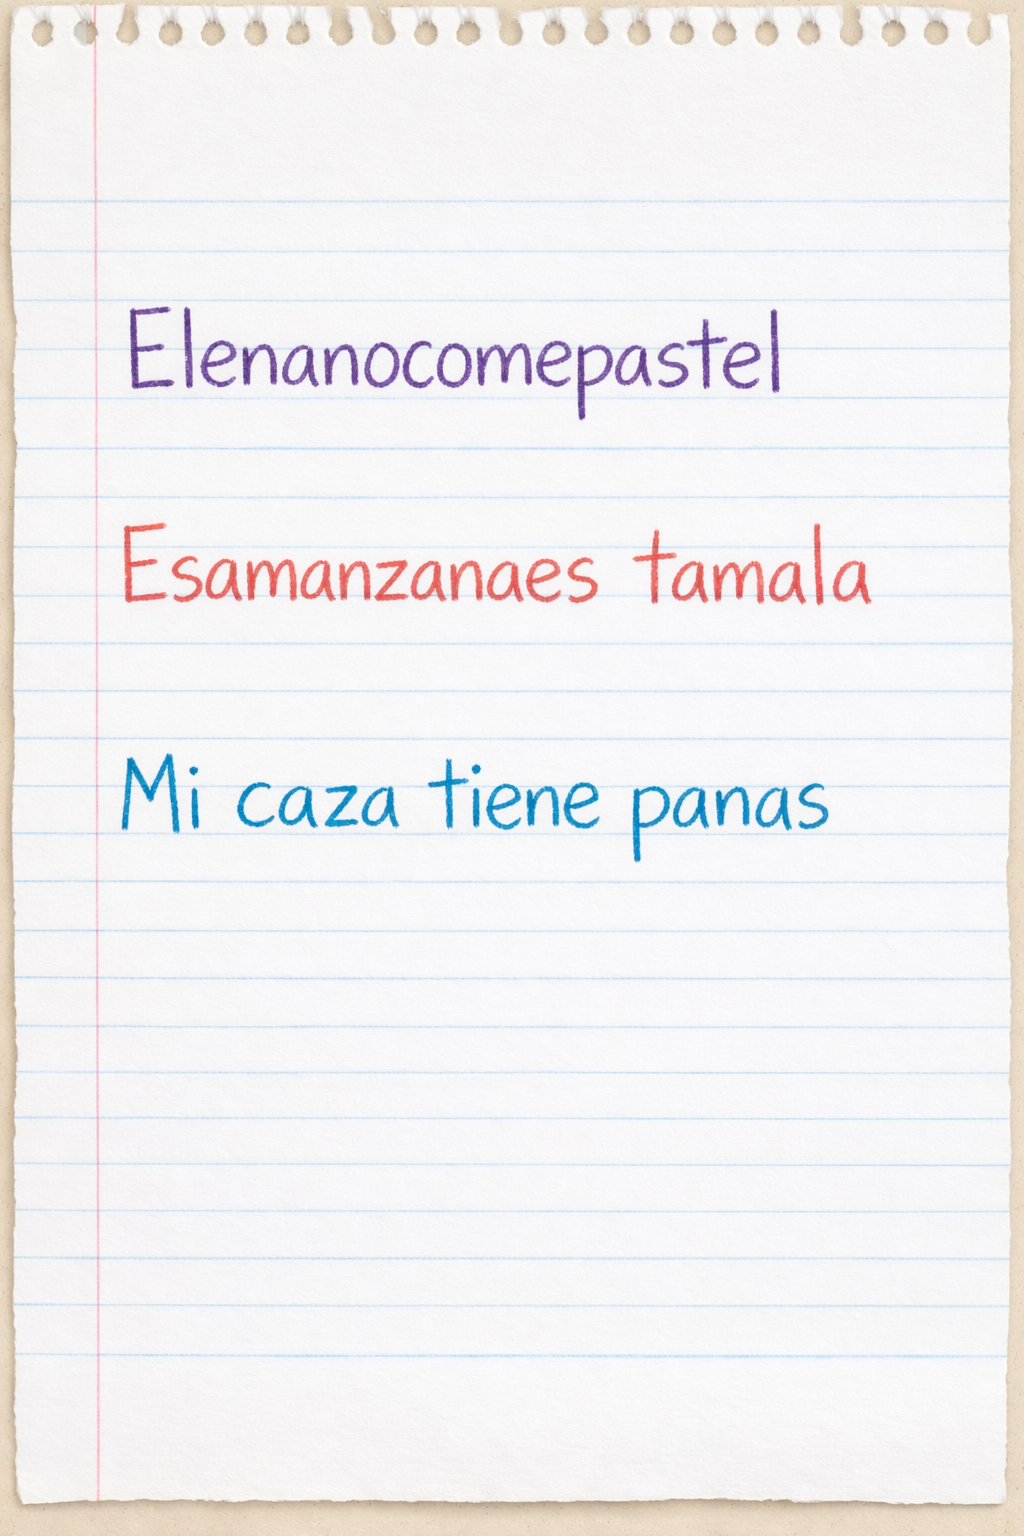 Elenanocomepastel
Esamanzanaes tamala
Mi caza tiene panas